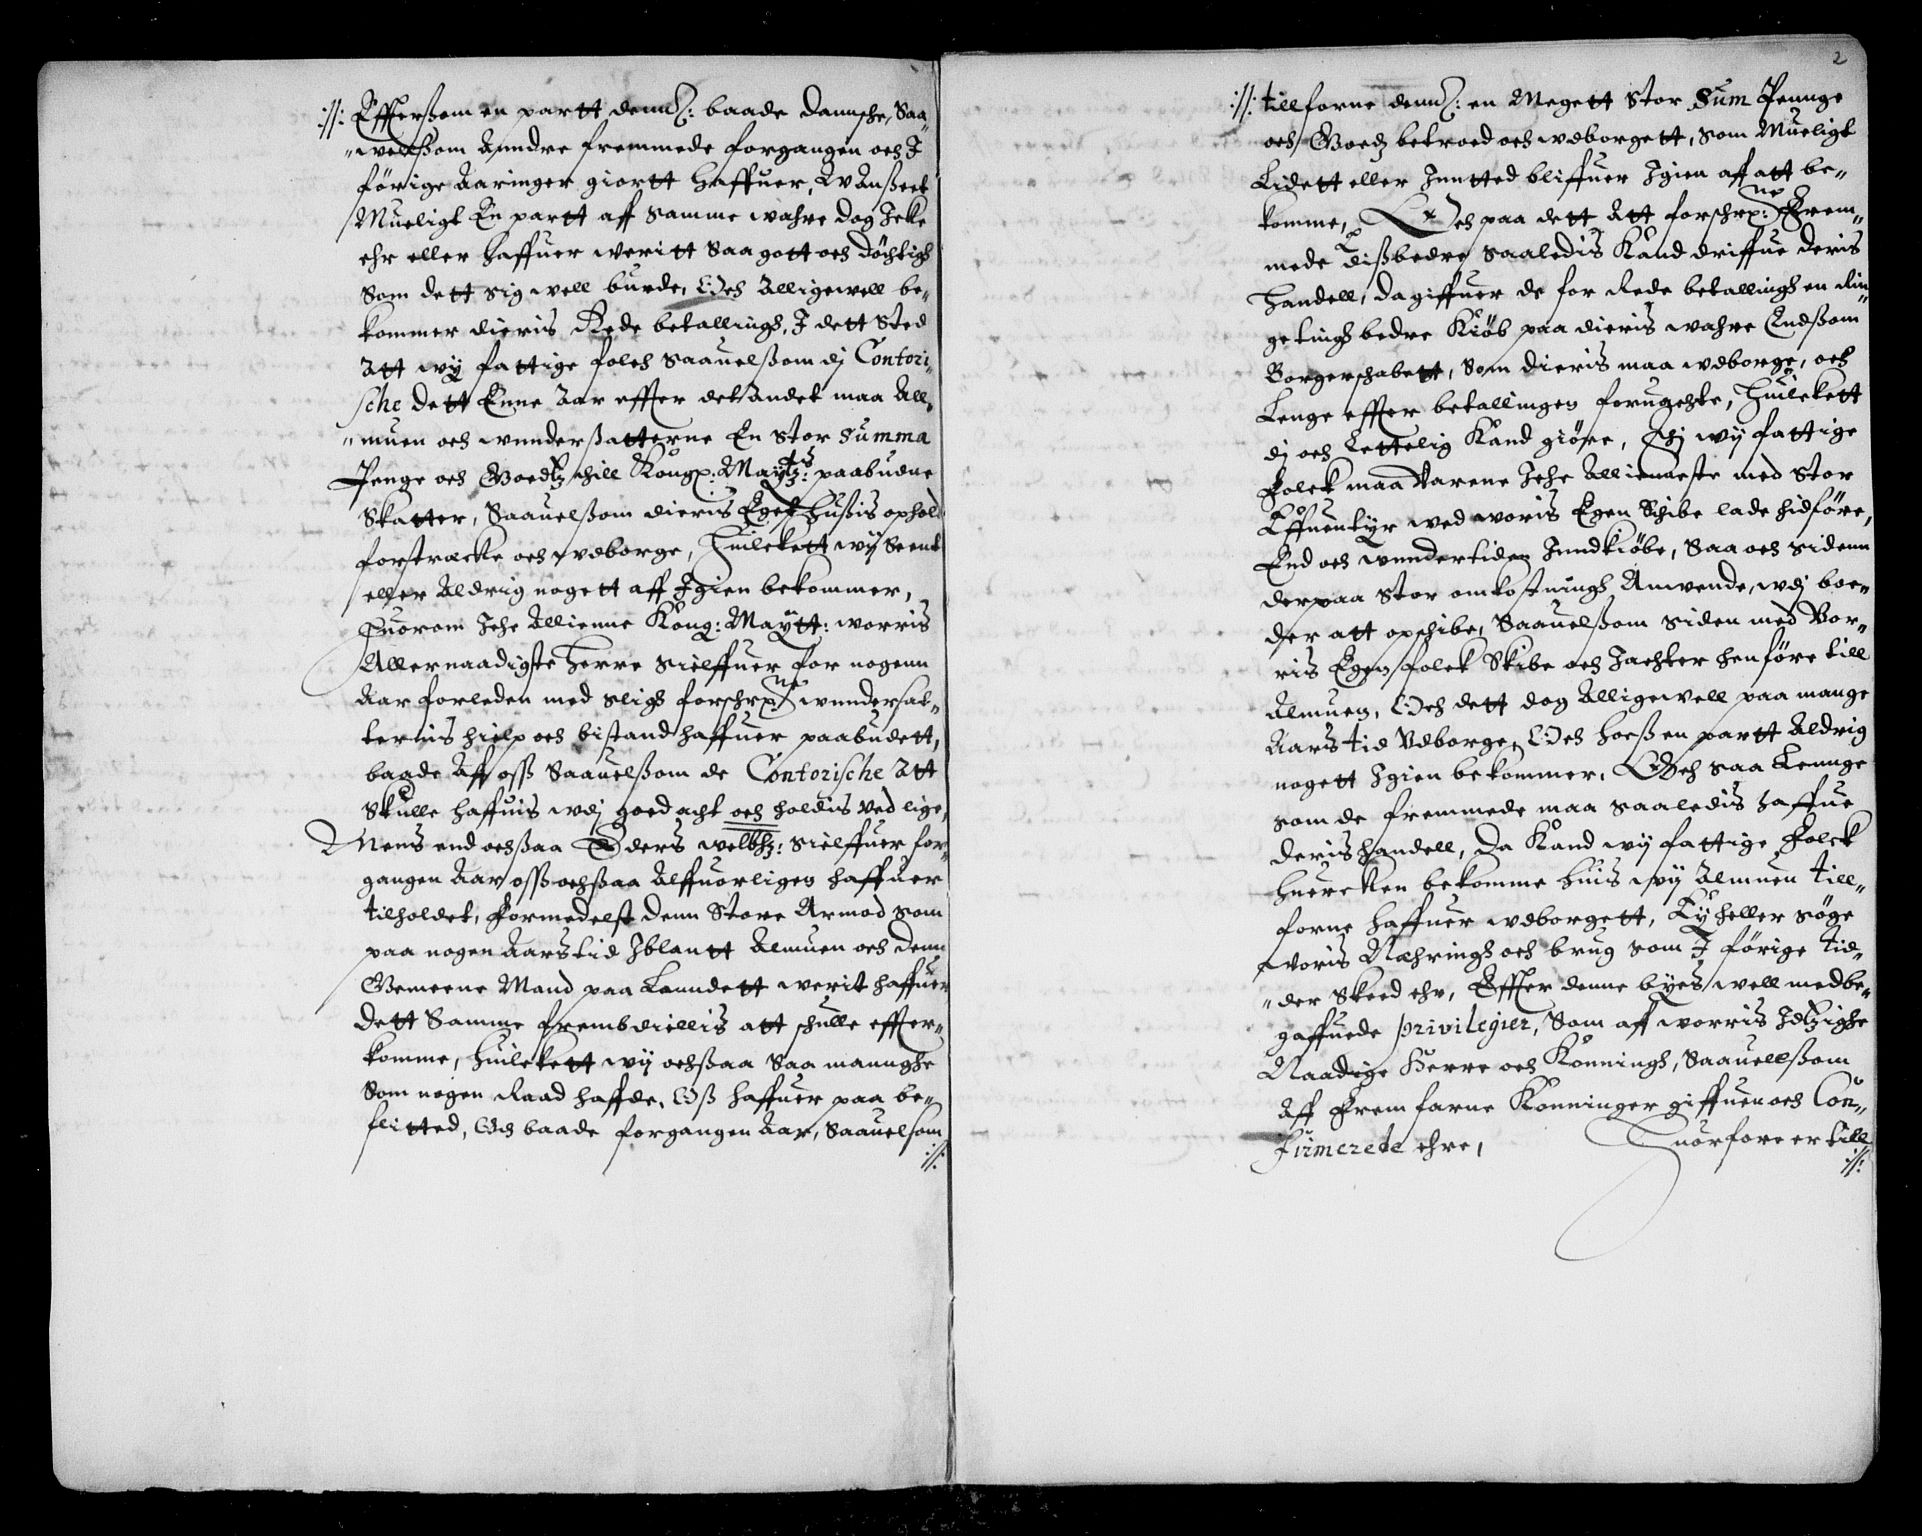 :/: Effterßom en partt dennẽ: baade dannsche, Saa„
„velßom Anndre fremmede forgangen och J
förige Aaringer giortt haffuer, Uanßeet
Mueligt En partt aff samme wahre dog Icke
ehr eller haffuer weritt saa gott och döchtigh
Som dett sig well burde, Och Alligewell be„
kommer dieris Rede betallingh, J dett sted
Att wy fattige folch saauelßom dj Contori„
sche dett Enne Aar effter det Andet maa All„
„muen och wnnderßatterne En stor Summa
Penge och Goedtz till Kongẽ: Maytz: paabudne
Skatter, Saauelßom dieris Eget hußis ophold
forstræcke och wdborge, Huilckett wy Seent
eller Aldrig nogett aff Igien bekommer,
Huorom Iche Allienne Kong: Maytt: worris
Allernaadigste Herre Sielffuer for nogenn
Aar forleden med sligh forschrẽne wundersat„
ternis hielp och bistand haffuer paabudett,
baade Aff oss Saauelßom de Contorische Att
Skulle haffuis wdj goed acht och holdis ved lige,
Mens end ochßaa Eders welbhz: Sielffuer for„
gangen Aar oss ochßaa Alffuorligen haffuer
tilholdet, Formedelst denn Store Armod som
paa nogen Aars tid Iblantt Almuen och denn
Gemeene Mand paa Lanndett werit haffuer
dett Samme frembdiellis att schulle effter„
komme, huilckett wy ochßaa Saa mannghe
Som nogen Raad haffde, Oss haffuer paa be„
flitted, Och baade forgangen Aar, Saauelsom
:/:
2
:/: tillforne dennẽ: en Megett Stor Sum Pennge
och Goedz betroed och wdborgett, som Mueligt
Lidett eller Inntted bliffuer Igien aff att be„
komme, Och paa dett Att forschrẽne Frem„
mede dißbedre Saaledis Kand driffue deris
Handell, da giffuer de for Rede betallingh en Rin„
getingh bedre Kiöb paa dieris wahre Endßom
Borgerschabett, Som dieris maa wdborge, och
Lenge effter betallingen forugehte, Huilckett
dj och Lettelig Kand giöre, Thj wy fattige
Folck maa Varene Iche Allieneste med Stor
Effuentyr wed woris Egen Schibe lade hidföre,
End och wnndertiden Inndkiöbe, Saa och sidenn
derpaa Stor omkostningh Anwende, wdj boe„
der att opschibe, Saauelßom siden med Vor„
ris Egen folck Skibe och Iachter henföre till
Almuen, Och dett dog Alligewell paa mange
Aars tid Vdborge, Och hoeß en partt Aldrig
nogett Igien bekommer, Och saa Lennge
som de fremmede maa saaledis haffue
deris handell, da Kand wy fattige Folck
huercken bekomme huis wy Almuen till„
forne haffuer wdborgett, Ey heller söge
Voris Næhringh och brug som J förige tid„
„der Skeed ehr, Effter denne byes well medbe„
gaffuede privilegier, Som aff worris Idtzighe
Naadige Herre och Konningh, Saauellßom
Aff Frem farne Konninger giffuen och Con„
firmerede ehre, Huorfore er till
:/: